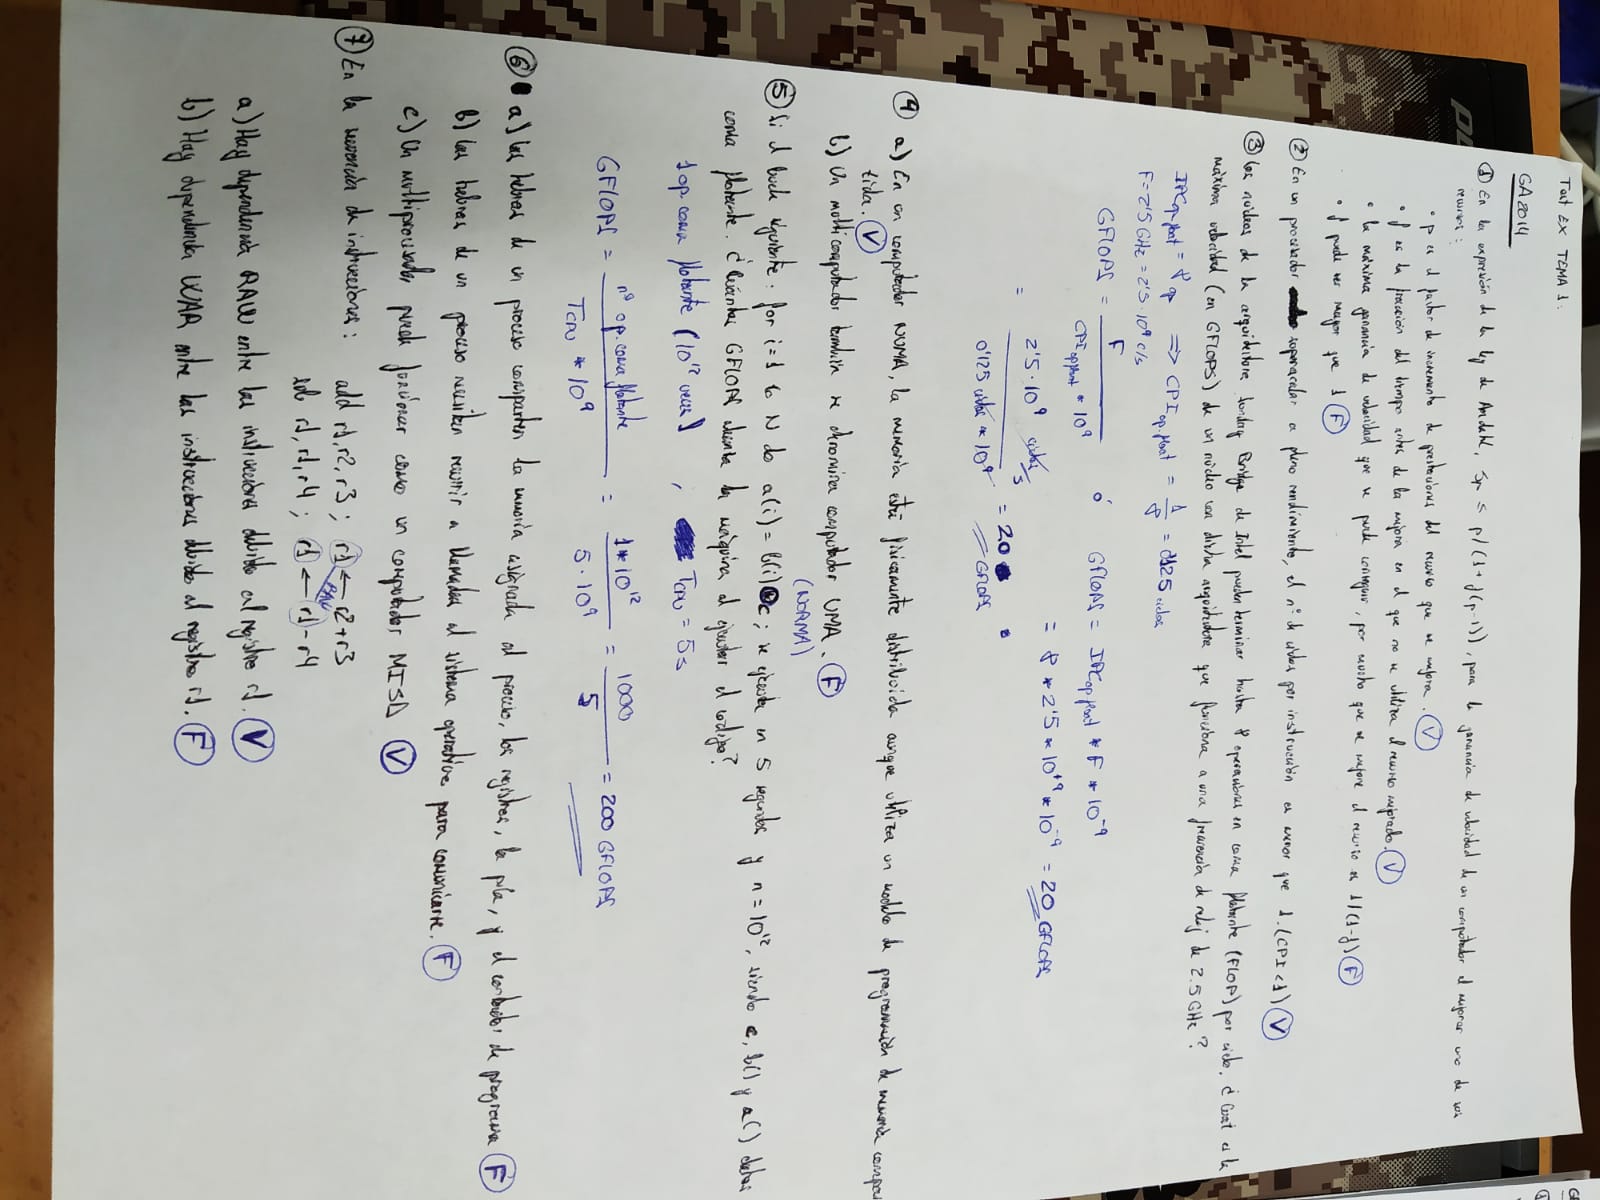 Test Ex TEMA 1:
GA2014
① En la expresión de la ley de Amdahl, Sp ≤ p/(1+f(p-1)), para la ganancia de velocidad de un computador al mejorar uno de sus
recursos:
• p es el factor de incremento de prestaciones del recurso que se mejora. (V)
• f es la fracción del tiempo antes de la mejora en el que no se utiliza el recurso mejorado. (V)
• la máxima ganancia de velocidad que se puede conseguir, por mucho que se mejore el recurso es 1/(1-f) (F)
• f puede ser mayor que 1 (F)
② En un procesador superescalar a pleno rendimiento, el nº de ciclos por instrucción es menor que 1. (CPI<1) (V)
③ Los núcleos de la arquitectura Sandy Bridge de Intel pueden terminar hasta 8 operaciones en coma flotante (FLOP) por ciclo. ¿Cuál es la
máxima velocidad (en GFLOPS) de un núcleo con dicha arquitectura que funciona a una frecuencia de reloj de 2.5GHz?
IPC op.float = 8 op ⇒ CPI op.float = 1/8 = 0'125 ciclos
F=2'5 GHz = 2'5·10⁹ c/s
GFLOPS = F / CPI op.float * 10⁹ ó GFLOPS = IPC op.float * F * 10⁻⁹
= 2'5·10⁹ ciclos/s / 0'125 ciclos * 10⁹ = 20 GFLOPS = 8 * 2'5 * 10⁺⁹ * 10⁻⁹ = 20 GFLOPS
④ a) En un computador NUMA, la memoria está físicamente distribuida aunque utiliza un modelo de programación de memoria compar
tida. (V)
b) Un multicomputador también se denomina computador UMA. (F)
(NORMA)
⑤ Si el bucle siguiente: for i=1 to N do a(i) = b(i) c; se ejecuta en 5 segundos y n=10¹², siendo c, b() y a() datos
coma flotante. ¿Cuántos GFLOPS alcanza la máquina al ejecutar el código?
1 op. coma flotante (10¹² veces) , Tcpu = 5s
GFLOPS = nº op. coma flotante / Tcpu * 10⁹ = 1*10¹² / 5·10⁹ = 1000 / 5 = 200 GFLOPS
⑥ a) Las hebras de un proceso comparten la memoria asignada al proceso, los registros, la pila, y el contador de programa (F)
b) Las hebras de un proceso necesitan recurrir a llamadas al sistema operativo para comunicarse. (F)
c) Un multiprocesador puede funcionar como un computador MISD (V)
⑦ En la secuencia de instrucciones: add r1,r2,r3; r1 ← r2+r3
RAW
sub r1,r1,r4; r1 ← r1-r4
a) Hay dependencia RAW entre las instrucciones debido al registro r1. (V)
b) Hay dependencia WAR entre las instrucciones debido al registro r1. (F)